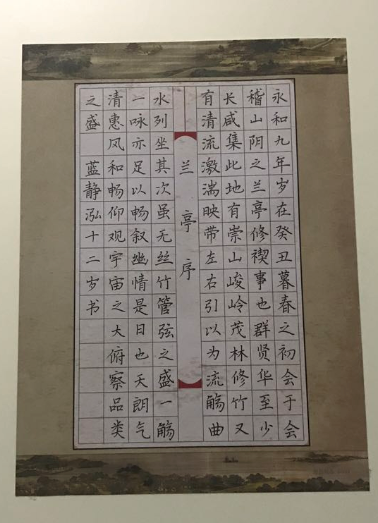 永和九年岁在癸丑暮春之初会于会
稽山阴之兰亭修禊事也群贤毕至少
长咸集此地有崇山峻岭茂林修竹又
有清流激湍映带左右引以为流觞曲
兰亭序
水列坐其次虽无丝竹管弦之盛一觞
一咏亦足以畅叙幽情是日也天朗气
清惠风和畅仰观宇宙之大俯察品类
之盛 蓝静泓十二岁书